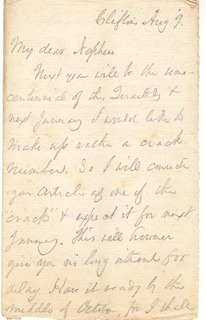 Clifton Aug 9.
My dear Nephew
Next year will be the semi-
centennial of the Quarterly &
next January I would like to
make up rather a crack
number. So I will consider
your article as one of the
"cracks" & expect it for next
January. This will however
give you no long interval for
delay. Have it ready by the
middle of October, for I shall